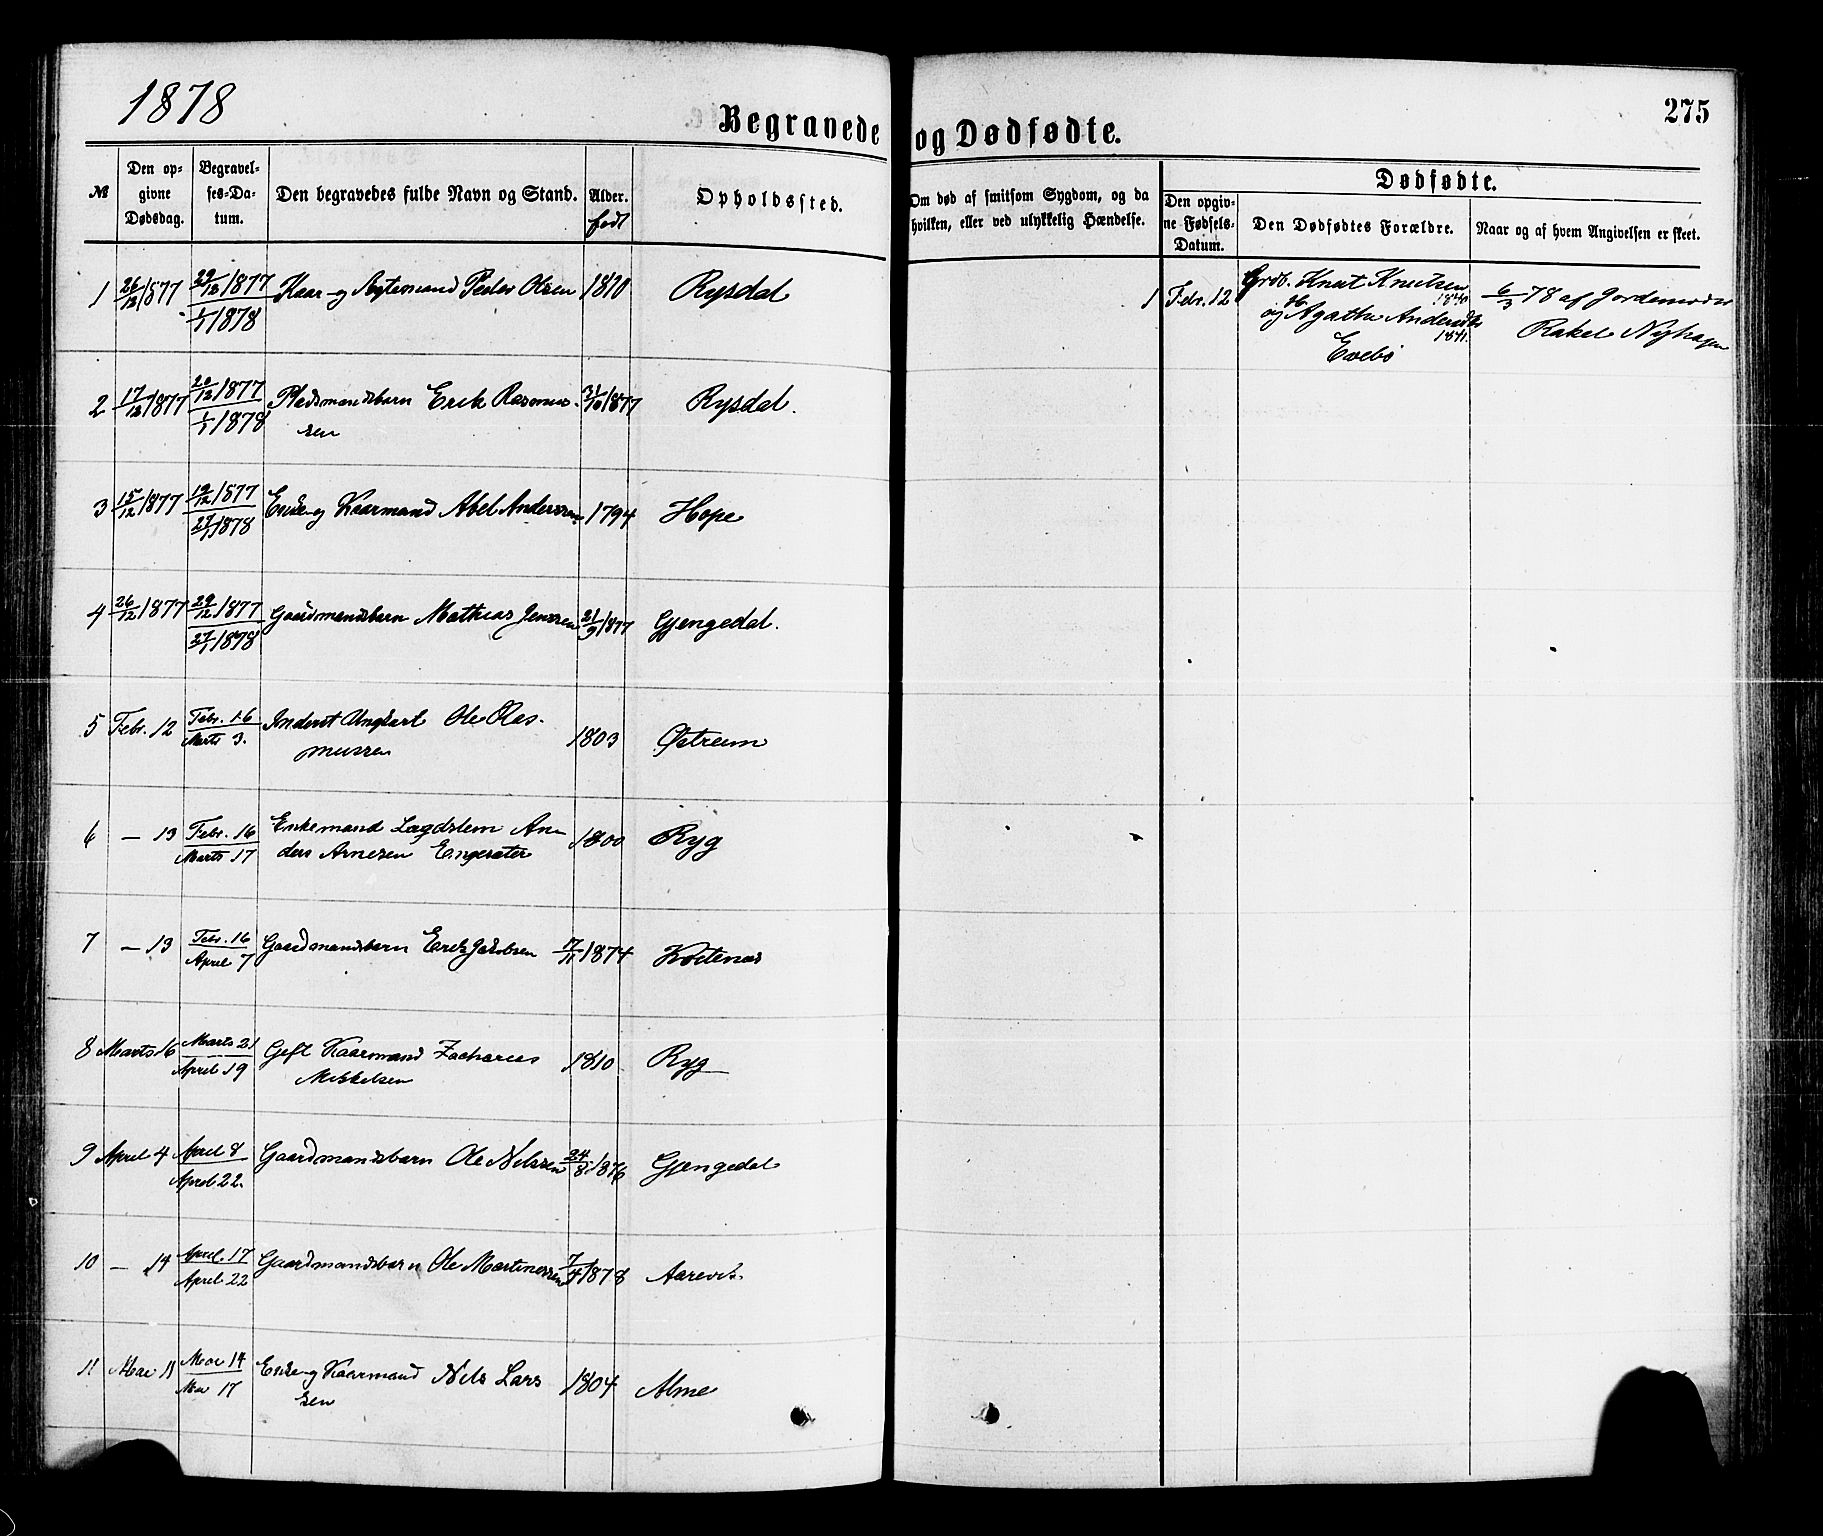 1878
Begravede og Dødfødte.
275
№
Den opgivne Dødsdag.
Begravelses-Datum.
Den begravedes fulde Navn og Stand.
Alder.
født
Opholdssted.
Om død af smitsom Sygdom, og da hvilken, eller ved ulykkelig Hændelse.
Dødfødte.
Den opgivne Fødsels-Datum.
Den Dødfødtes Forældre.
Naar og af hvem Angivelsen er skeet.
1 26/12 1877 29/12 1877 Kaar- og Peder Olsen 1810 Rysdal
1/1 1878
2 17/12 1877 20/12 1877 Pladsmandsbarn Erik Rasmus- 31/10 1877 Rysdal.
1/1 1878 sen
3 15/12 1877 19/12 1877 Enke- og Kaarmand Abel Anderssen 1794 Hope
27/1 1878
4 26/12 1877 29/12 1877 Gaardmandsbarn Mathias Jenssen 21/9 1877 Gjengedal.
27/1 1878
5 Febr. 12 Febr. 16 Inderst Ungkarl Ole Ras- 1803 Østreim
Marts 3. mussen
6 — 13 Febr. 16 Enkemand Lægdslem An- 1800 Ryg
Marts 17 ders Arnesen Engesæter
7 — 13 Febr. 16 Gaardmandsbarn Erik Jakobsen 17/11 1874
April 7
8 Marts 16 Marts 21 Gift Kaarmand Zacharias 1810 Ryg
April 19 Mikkelsen
9 April 4 April 8 Gaardmandsbarn Ole Nilssen 24/8 1876 Gjengedal
April 22.
10 — 14 April 17 Gaardmandsbarn Ole Martinessen 7/4 1878
April 22
11 Mai 11 Mai 14 Enke- og Kaarmand Nils Lars 1804 Alme
Mai 17 sen
1 Febr. 12 Grdb. Knut Knutsen 6/3 78 af Jordemoder
og H. Agathe Andersdtr Rakel Nyhagen
1841.
Evebø